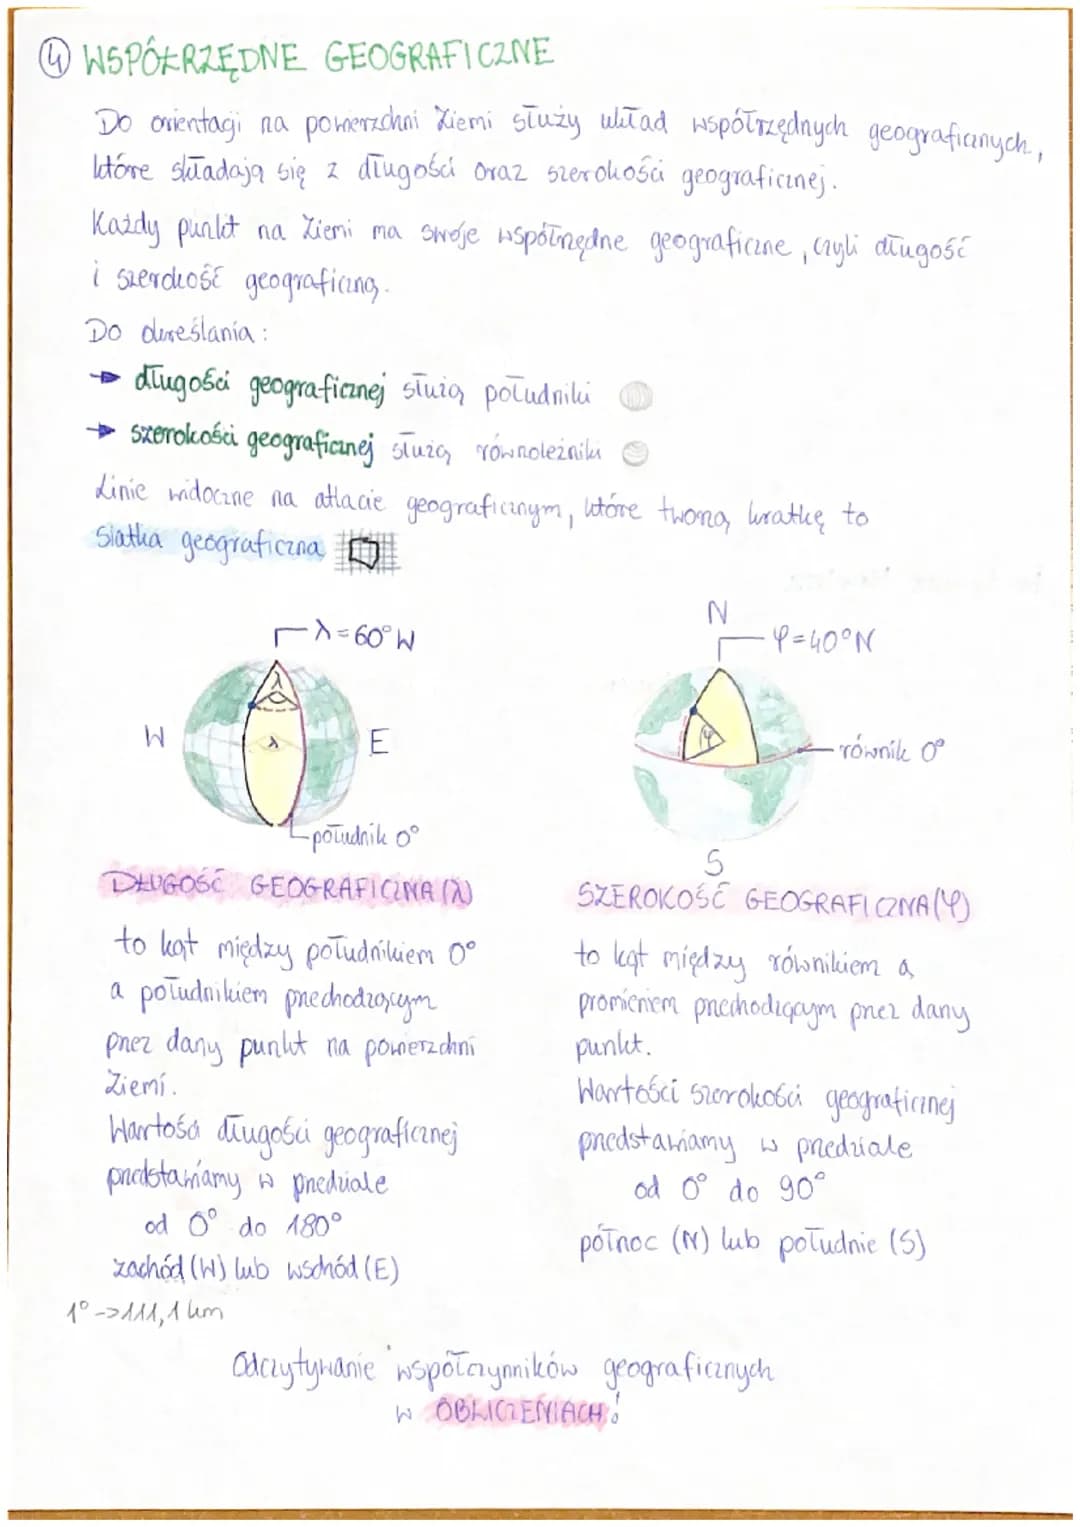 ④ WSPÓŁRZĘDNE GEOGRAFICZNE
Do orientacji na powierzchni Ziemi służy układ współrzędnych geograficznych,
które składają się z długości oraz szerokości geograficznej.
Każdy punkt na Ziemi ma swoje współrzędne geograficzne, czyli długość
i szerokość geograficzną.
Do określania:
→ długości geograficznej służą południki
→ szerokości geograficznej służą równoleżniki
Linie widoczne na atlacie geograficznym, które tworzą kratkę to
siatka geograficzna
λ=60°W
λ
λ
W
E
południk 0°
N
φ=40°N
φ
równik 0°
S
DŁUGOŚĆ GEOGRAFICZNA (λ)
to kąt między południkiem 0°
a południkiem przechodzącym
przez dany punkt na powierzchni
Ziemi.
Wartości długości geograficznej
przedstawiamy w przedziale
od 0° do 180°
zachód (W) lub wschód (E)
1° -> 111,1 km
SZEROKOŚĆ GEOGRAFICZNA (φ)
to kąt między równikiem a
promieniem przechodzącym przez dany
punkt.
Wartości szerokości geograficznej
przedstawiamy w przedziale
od 0° do 90°
północ (N) lub południe (S)
Odczytywanie współczynników geograficznych
w OBLICZENIACH!